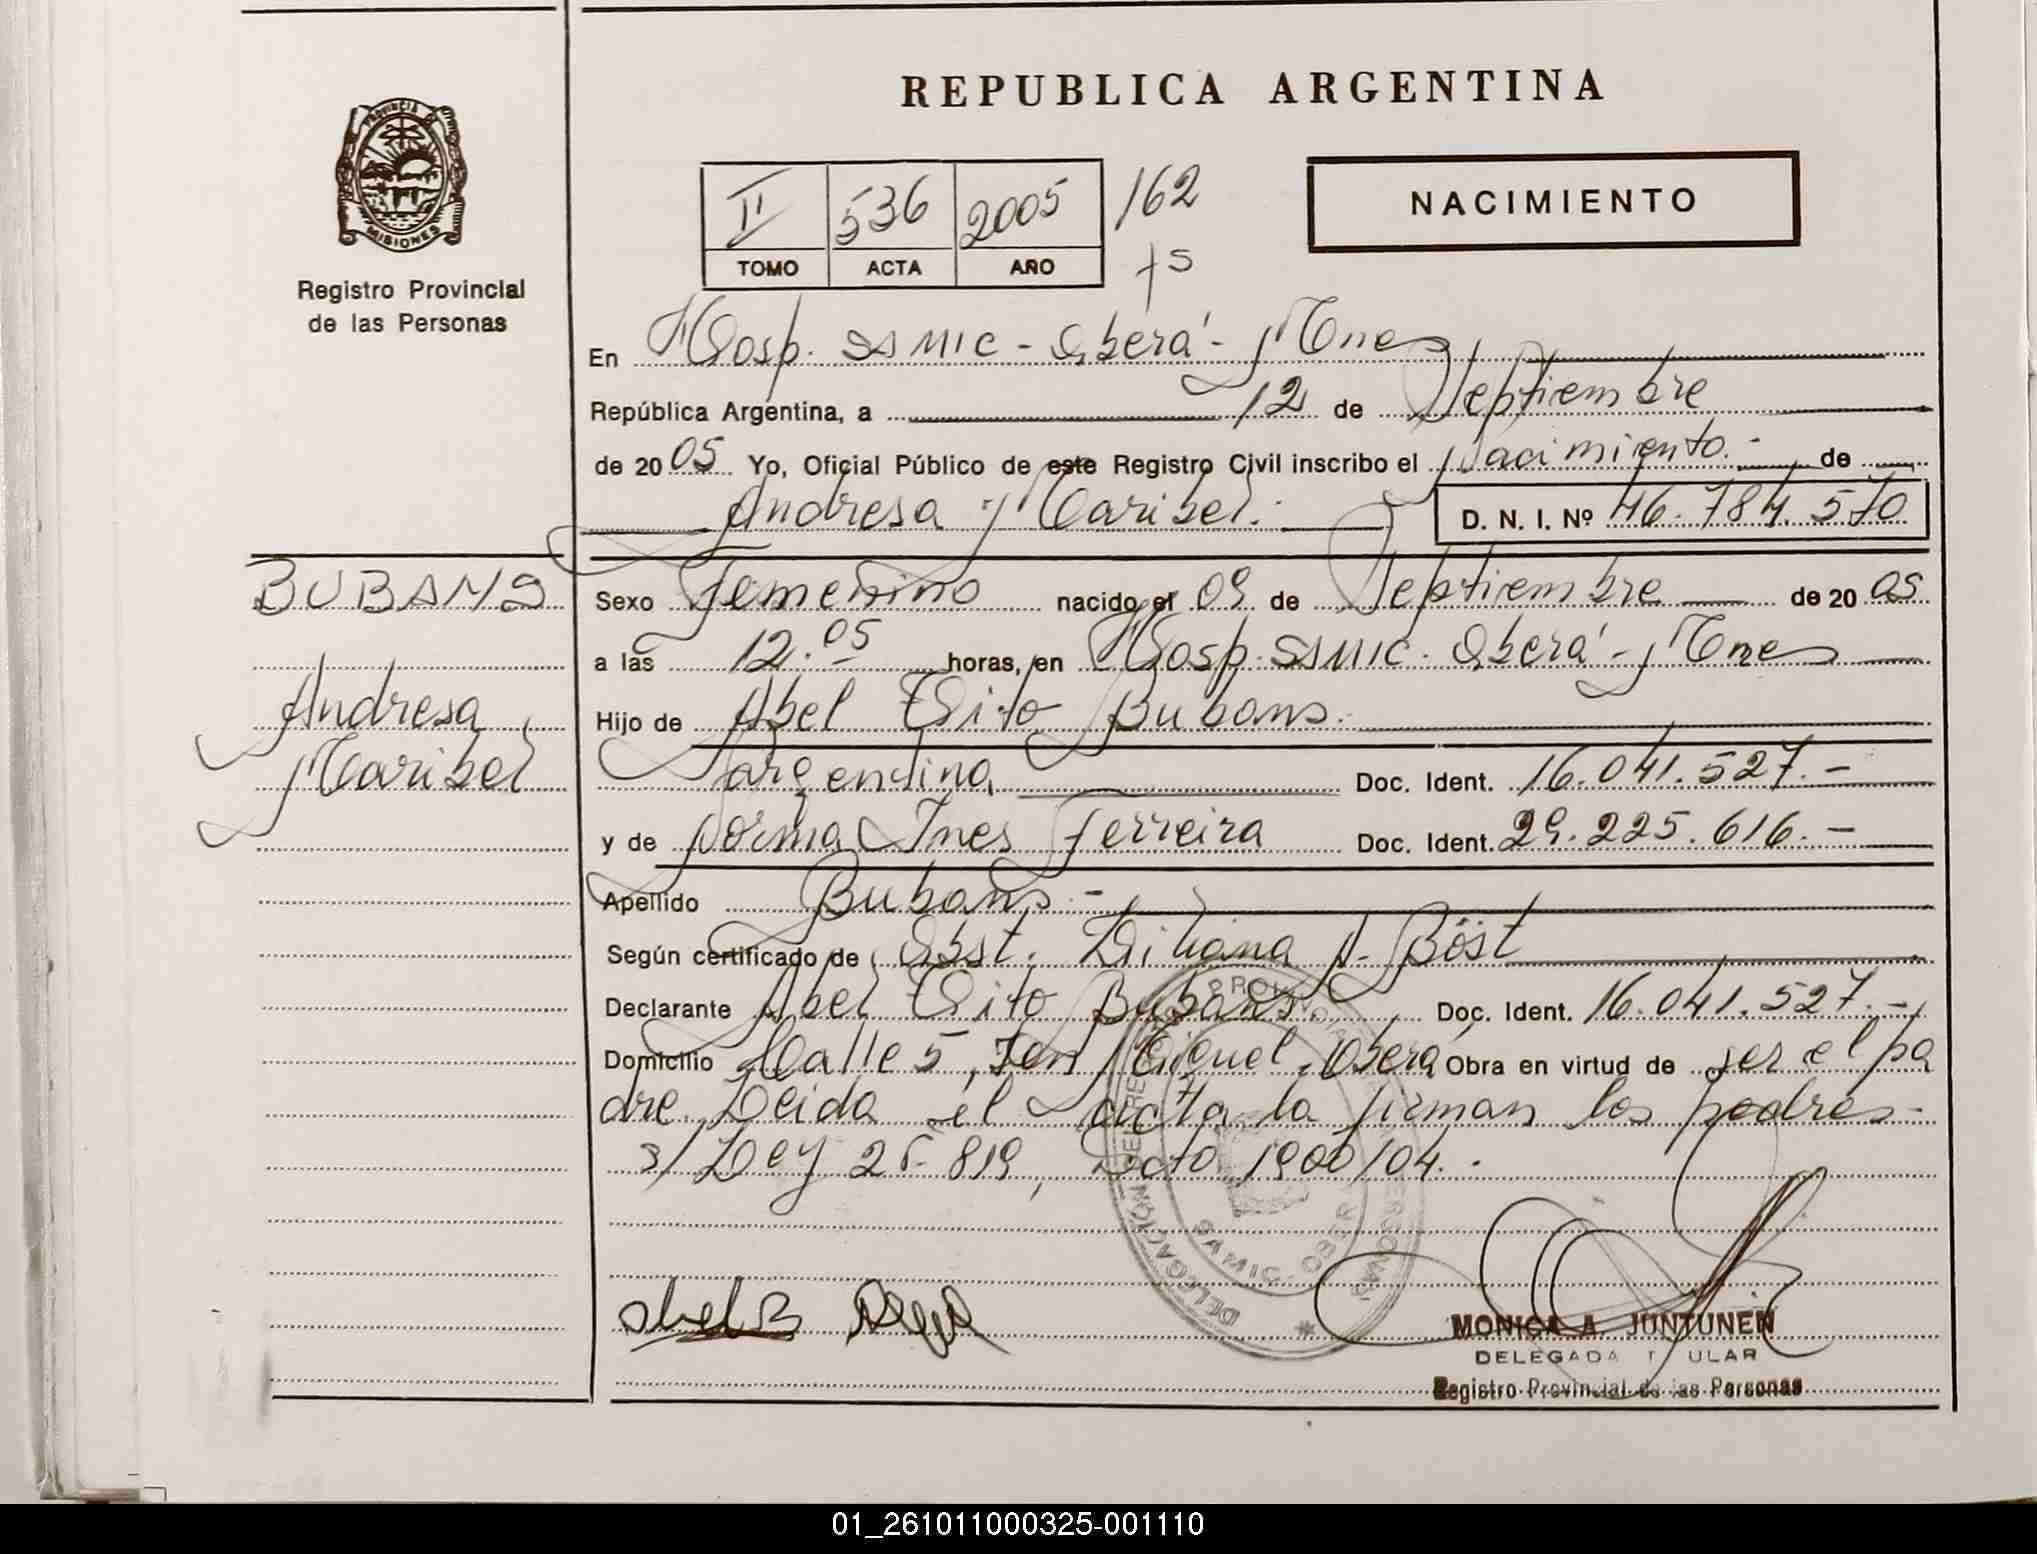 REPUBLICA ARGENTINA
PROVINCIA DE
MISIONES
Registro Provincial
de las Personas
II 536 2005 162
TOMO ACTA AÑO fs
NACIMIENTO
En Hosp. SAMIC - Oberá - Mnes
República Argentina, a 12 de Septiembre
de 2005 Yo, Oficial Público de este Registro Civil inscribo el Nacimiento.- de
Andresa Maribel.-
D. N. I. Nº 46.784.570
BUBANS
Andresa
Maribel
Sexo Femenino nacido el 09 de Septiembre de 2005
a las 12.05 horas, en Hosp. SAMIC. Oberá - Mnes
Hijo de Abel Tito Bubans.-
Argentina Doc. Ident. 16.041.527.-
y de Norma Ines Ferreira Doc. Ident. 29.225.616.-
Apellido Bubans.-
Según certificado de Obst. Liliana A. Böst
Declarante Abel Tito Bubans. Doc. Ident. 16.041.527.-
Domicilio Calle 5, San Miguel, Oberá Obra en virtud de ser el pa
dre. Leida el acta la firman los padres-
s/ Ley 25.819, Dcto 1900/04.-
DELEGACIÓN DEL REG. PROVINCIAL PERSONAS
SAMIC - OBERÁ
Abel B
MONICA A. JUNTUNEN
DELEGADA T ULAR
Registro Provincial de las Personas
01_261011000325-001110